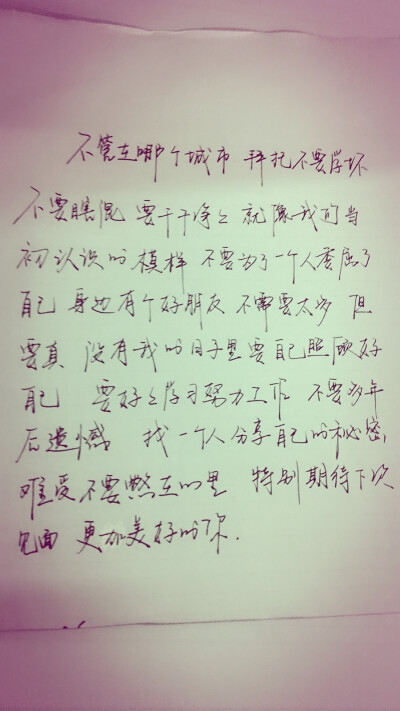 不管在哪个城市 拜托不要学坏
不要瞎混 要干干净净 就像我们当
初认识的模样 不要为了一个人委屈了
自己 身边有个好朋友 不需要太多 但
要真 没有我的日子里要自己照顾好
自己 要好好学习努力工作 不要多年
后遗憾 找一个人分享自己的秘密,
难受不要憋在心里 特别期待下次
见面 更加美好的你.